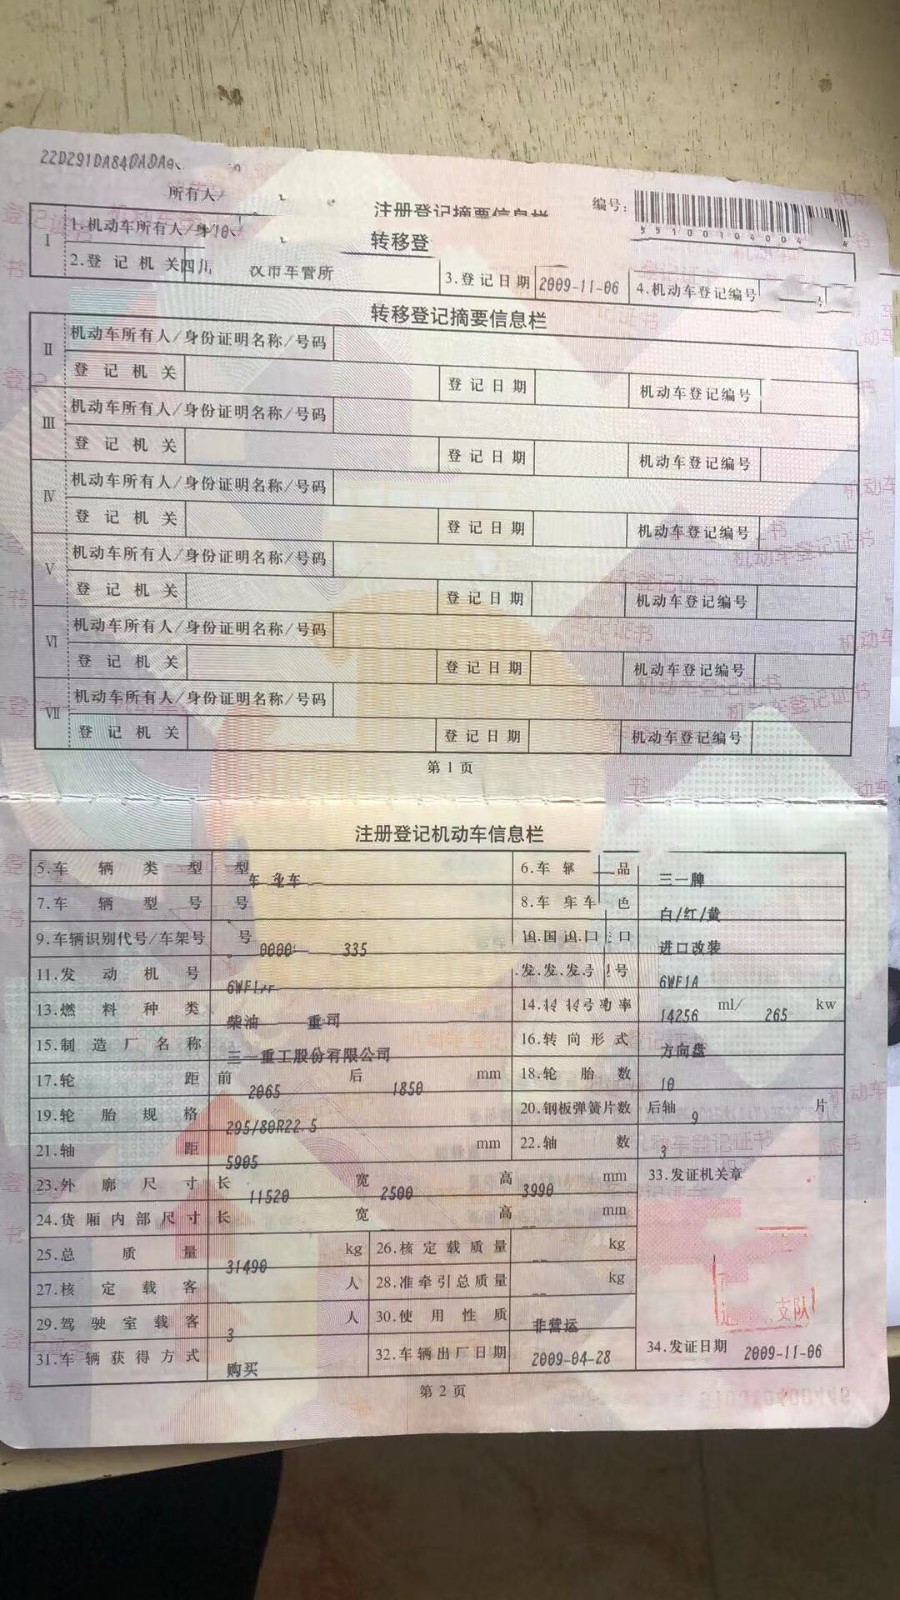 所有人/
注册登记摘要信息栏 编号:
Ⅰ 1.机动车所有人/身 转移登
2.登记机关 四川 汉市车管所 3.登记日期 2009-11-06 4.机动车登记编号
转移登记摘要信息栏
Ⅱ 机动车所有人/身份证明名称/号码
登记机关 登记日期 机动车登记编号
Ⅲ 机动车所有人/身份证明名称/号码
登记机关 登记日期 机动车登记编号
Ⅳ 机动车所有人/身份证明名称/号码
登记机关 登记日期 机动车登记编号
Ⅴ 机动车所有人/身份证明名称/号码
登记机关 登记日期 机动车登记编号
Ⅵ 机动车所有人/身份证明名称/号码
登记机关 登记日期 机动车登记编号
Ⅶ 机动车所有人/身份证明名称/号码
登记机关 登记日期 机动车登记编号
第1页
注册登记机动车信息栏
5.车辆类型 型 6.车辆 品 三一牌
7.车辆型号 号 8.车 色 白/红/黄
9.车辆识别代号/车架号 号 0000 335 国 口 进口改装
11.发动机号 6WF1 号 6WF1A
13.燃料种类 柴油 重司 14. 率 14256 ml/ 265 kw
15.制造厂名称 三一重工股份有限公司 16.转向形式 方向盘
17.轮距 前 2065 后 1850 mm 18.轮胎数 10
19.轮胎规格 295/80R22.5 20.钢板弹簧片数 后轴 9 片
21.轴距 5905 mm 22.轴数 3
23.外廓尺寸 长 11520 宽 2500 高 3990 mm 33.发证机关章
24.货厢内部尺寸 长 宽 -- 高 -- mm
25.总质量 31490 kg 26.核定载质量 -- kg
27.核定载客 人 28.准牵引总质量 -- kg 支队
29.驾驶室载客 3 人 30.使用性质 非营运
31.车辆获得方式 购买 32.车辆出厂日期 2009-04-28 34.发证日期 2009-11-06
第2页